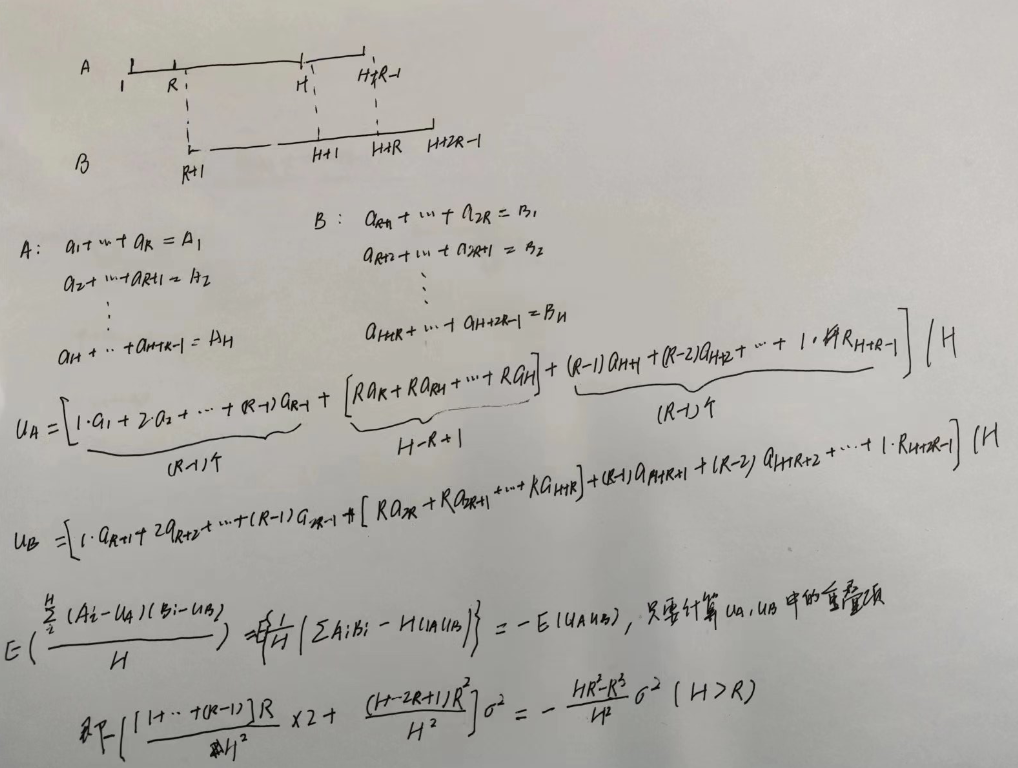 A
1 R H H+R-1
B
R+1 H+1 H+R H+2R-1
A: a₁+…+a_R = A₁
B: a_{R+1}+…+a_{2R} = B₁
a₂+…+a_{R+1} = A₂
a_{R+2}+…+a_{2R+1} = B₂
⋮
⋮
a_H+…+a_{H+R-1} = A_H
a_{H+R}+…+a_{H+2R-1} = B_H
u_A = [1·a₁+2·a₂+…+(R-1)a_{R-1} + [Ra_R+Ra_{R+1}+…+Ra_H] + (R-1)a_{H+1}+(R-2)a_{H+2}+…+1·R_{H+R-1}] / H
(R-1)个 H-R+1 (R-1)个
u_B = [1·a_{R+1}+2a_{R+2}+…+(R-1)a_{2R-1}+[Ra_{2R}+Ra_{2R+1}+…+Ra_{H+R}]+(R-1)a_{H+R+1}+(R-2)a_{H+R+2}+…+1·R_{H+2R-1}] / H
E(Σ^H (A_i-u_A)(B_i-u_B) / H) = E{1/H (ΣA_iB_i - Hu_Au_B)} = -E(u_Au_B), 只要计算u_A,u_B中的重叠项
即-[[1+…+(R-1)]R / H² ×2 + (H-2R+1)R² / H²]σ² = - HR²-R³ / H² σ² (H>R)